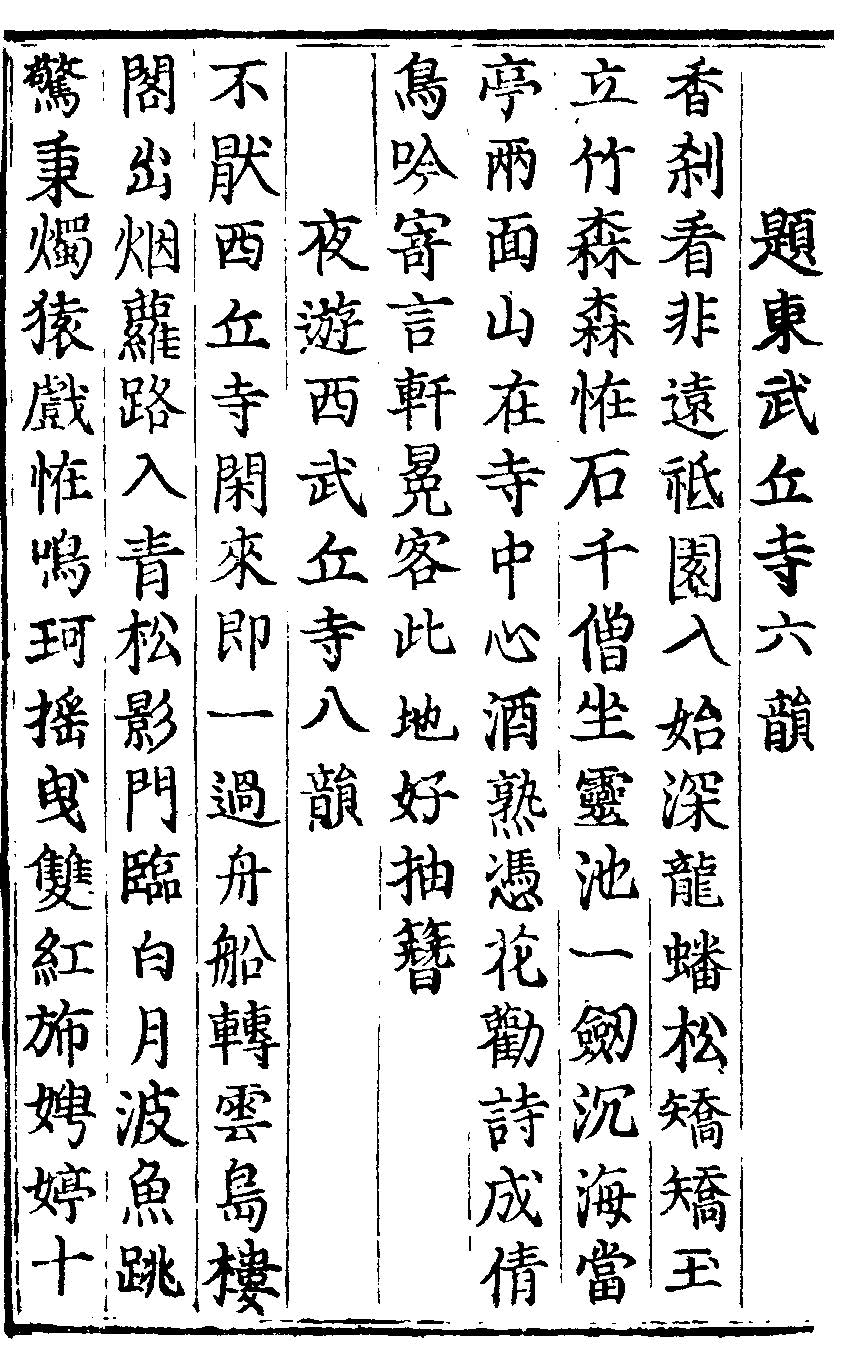 題東武丘寺六韻
香刹看非遠祗園入始深龍蟠松矯矯玉
立竹森森恠石千僧坐靈池一劔沉海當
亭兩面山在寺中心酒熟憑花勸詩成倩
鳥吟寄言軒冕客此地好抽簮
夜遊西武丘寺八韻
不猒西丘寺閑來即一過舟船轉雲島樓
閣出烟蘿路入青松影門臨白月波魚跳
驚秉燭猿戲恠鳴珂摇曳雙紅斾娉婷十